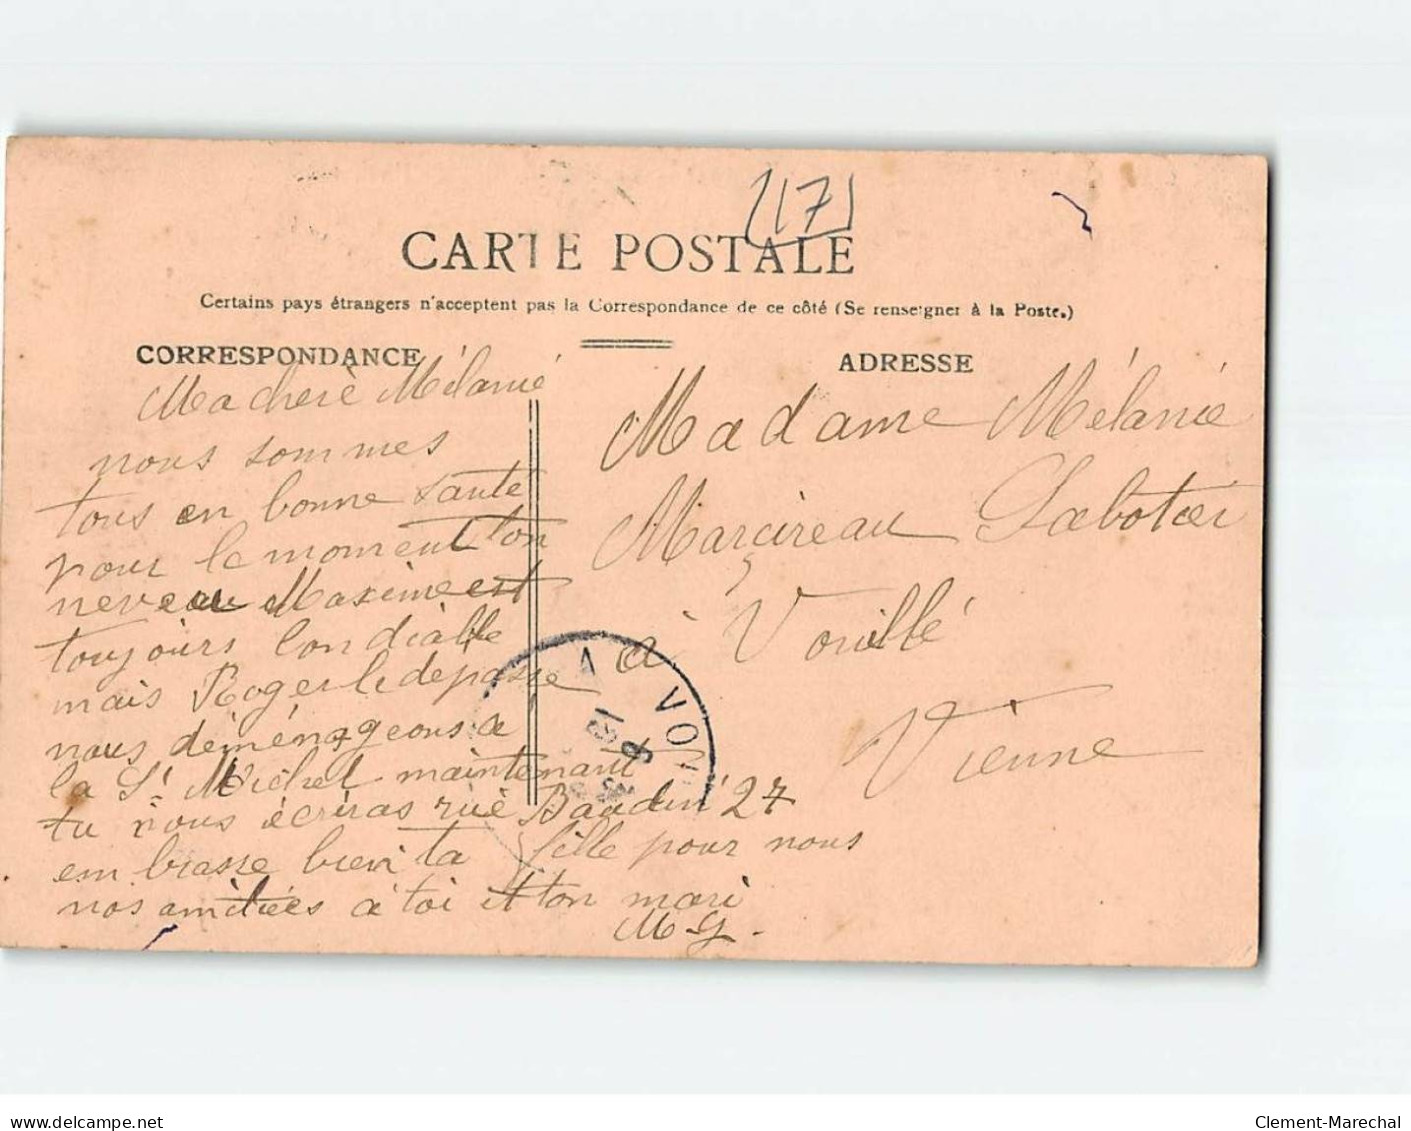 [171
CARTE POSTALE
Certains pays étrangers n'acceptent pas la Correspondance de ce côté (Se renseigner à la Poste.)
CORRESPONDANCE
Ma cherè Mélanié
nous sommes
tous en bonne santé
pour le moment ton
neveau Maxime est
toujours londiable
mais Roger le depasse
nous déménageons a
la St Michel maintenant
tu nous écriras rue Baudin 27
embrasse bien ta fille pour nous
nos amitiés à toi et ton mari
M G.
ADRESSE
Madame Mélanie
Marcireau Sabotier
à Vouillé
Vienne
VOU
www.delcampe.net
Clement-Marechal